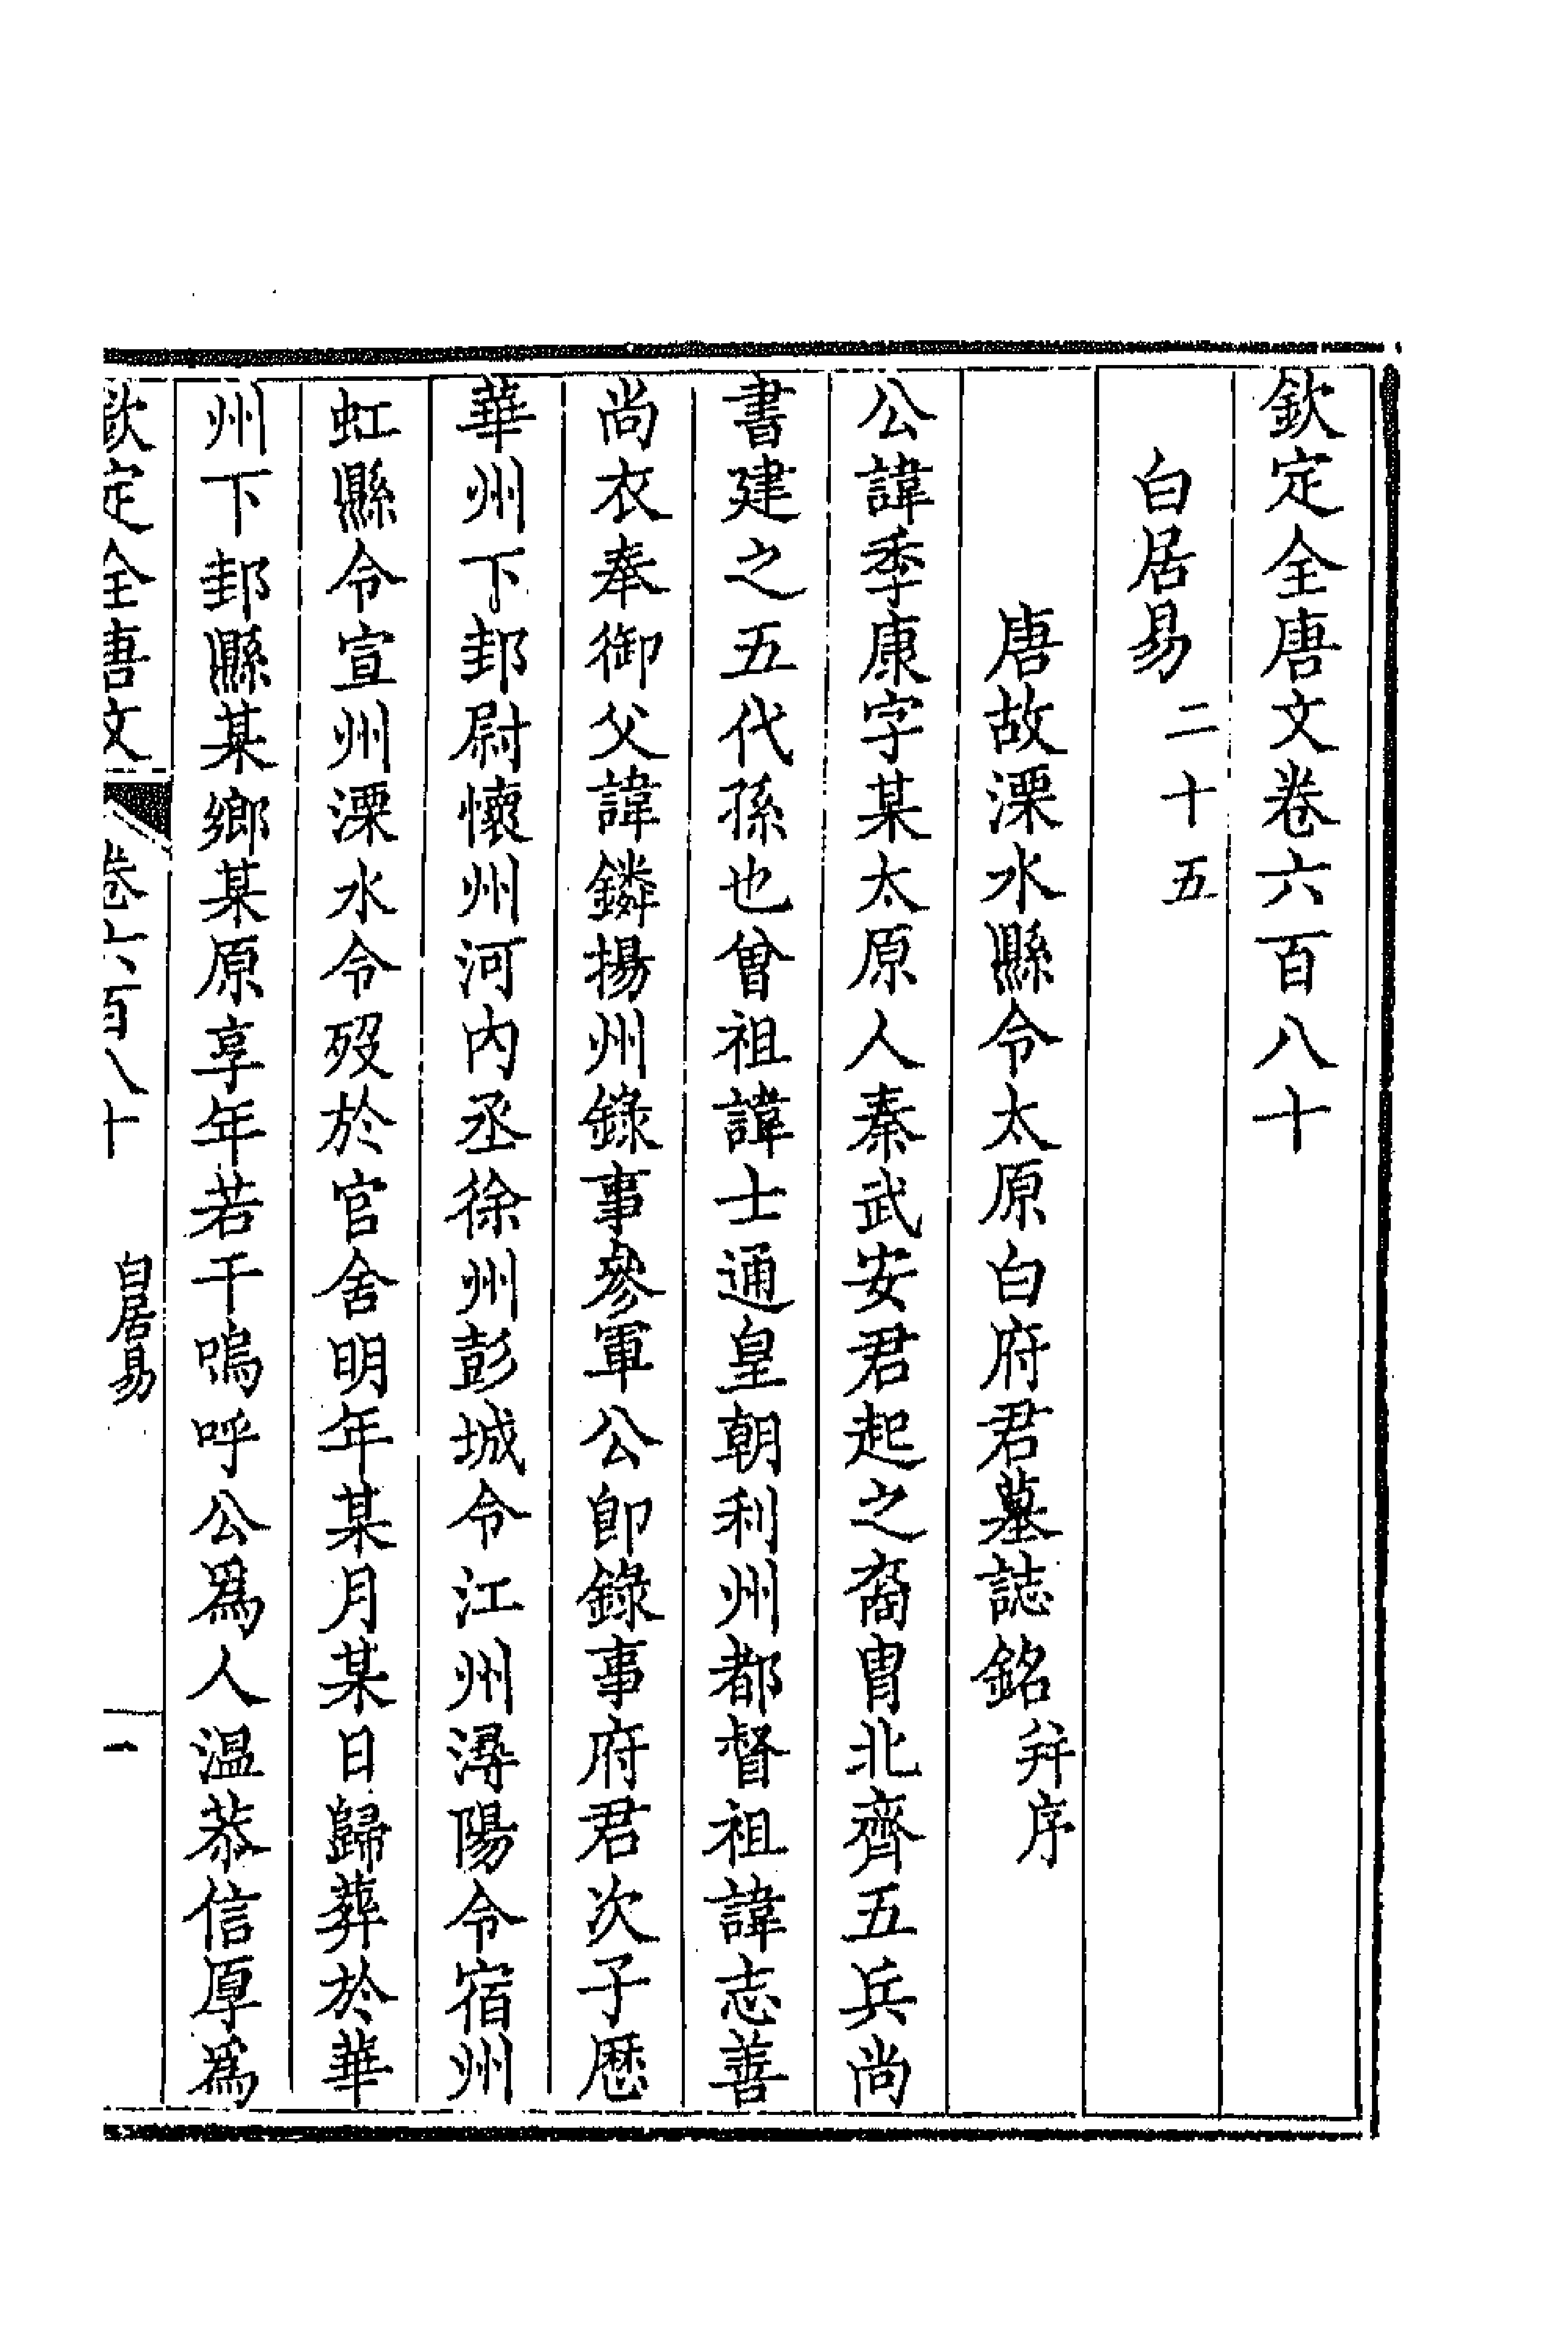 欽定全唐文卷六百八十
白居易二十五
唐故溧水縣令太原白府君墓誌銘并序
公諱季康字某太原人秦武安君起之裔冑北齊五兵尚
書建之五代孫也曾祖諱士通皇朝利州都督祖諱志善
尚衣奉御父諱鏻揚州錄事參軍公卽錄事府君次子歷
華州下邽尉懷州河內丞徐州彭城令江州潯陽令宿州
虹縣令宣州溧水令歿於官舍明年某月某日歸葬於華
州下邽縣某鄉某原享年若干嗚呼公爲人温恭信厚爲
欽定全唐文 卷六百八十 白居易 一